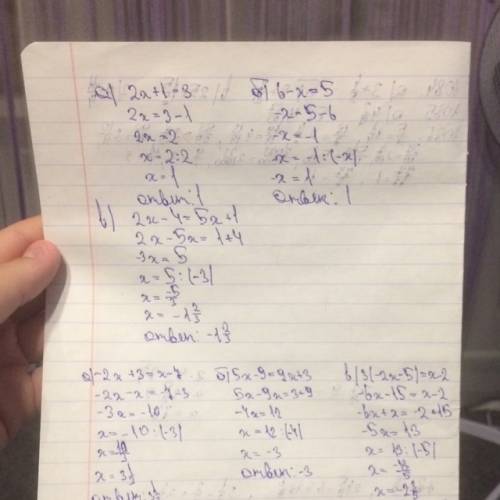 а) 2x+1=3
2x=3-1
2x=2
x=2:2
x=1
ответ: 1
б) 6-x=5
-x=5-6
-x=-1
x=-1:(-x)
x=1
ответ: 1
в)
2x-4=5x+1
2x-5x=1+4
-3x=5
x=5:(-3)
x=-5/3
x=-1 2/3
ответ: -1 2/3
а) -2x+3=x-7
-2x-x=-7-3
-3x=-10
x=-10:(-3)
x=10/3
x=3 1/3
ответ: 3 1/3
б) 5x-9=9x+3
5x-9x=3+9
-4x=12
x=12:(-4)
x=-3
ответ: -3
в) 3(-2x-5)=x-2
-6x-15=x-2
-6x+x=-2+15
-5x=13
x=13:(-5)
x=-13/5